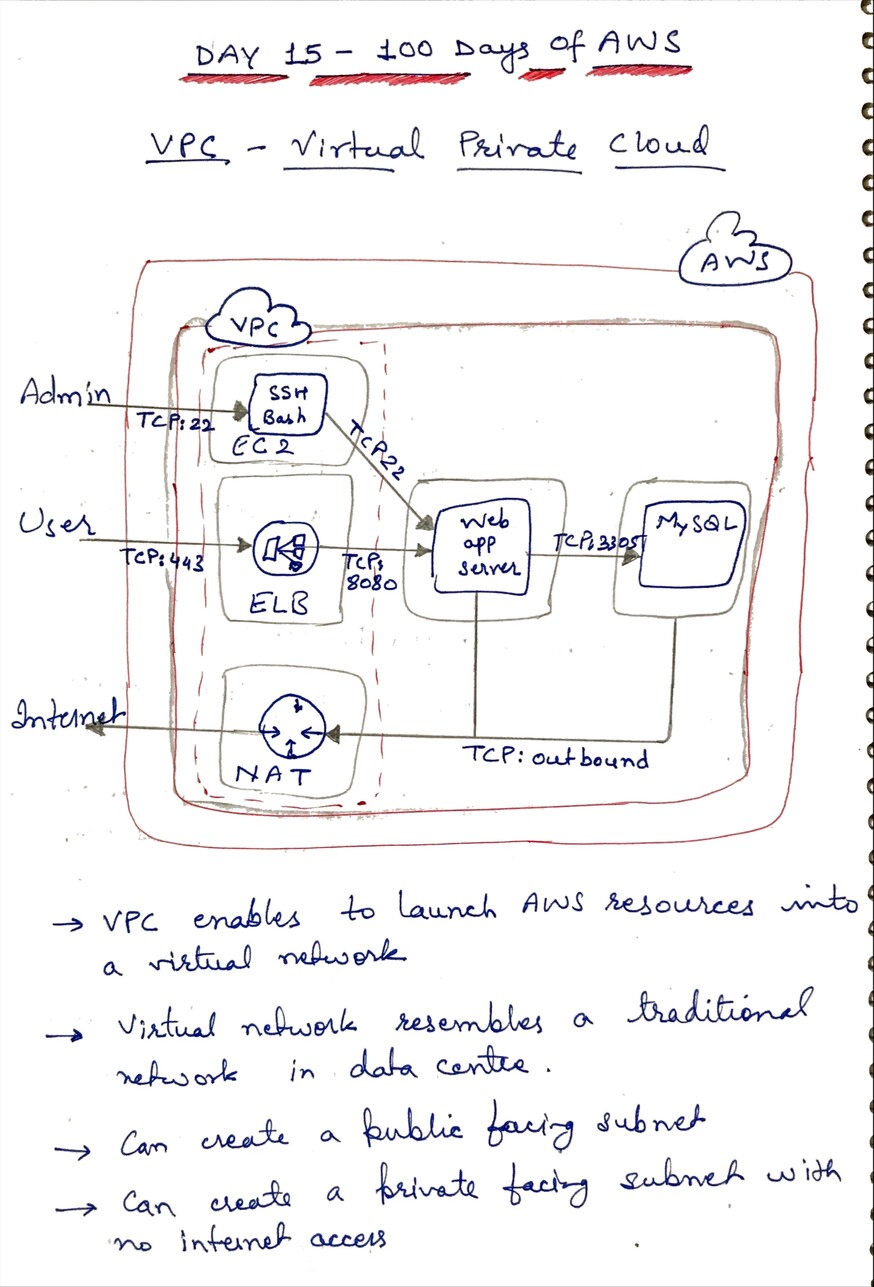 DAY 15 - 100 Days of AWS
VPC - Virtual Private Cloud
AWS
VPC
Admin
TCP:22
SSH
Bash
EC2
TCP 22
User
TCP:443
ELB
TCP:
8080
Web
app
server
TCP:3305
MySQL
Internet
NAT
TCP: outbound
→ VPC enables to launch AWS resources into
a virtual network
→ Virtual network resembles a traditional
network in data centre.
→ Can create a public facing subnet
→ Can create a private facing subnet with
no internet access